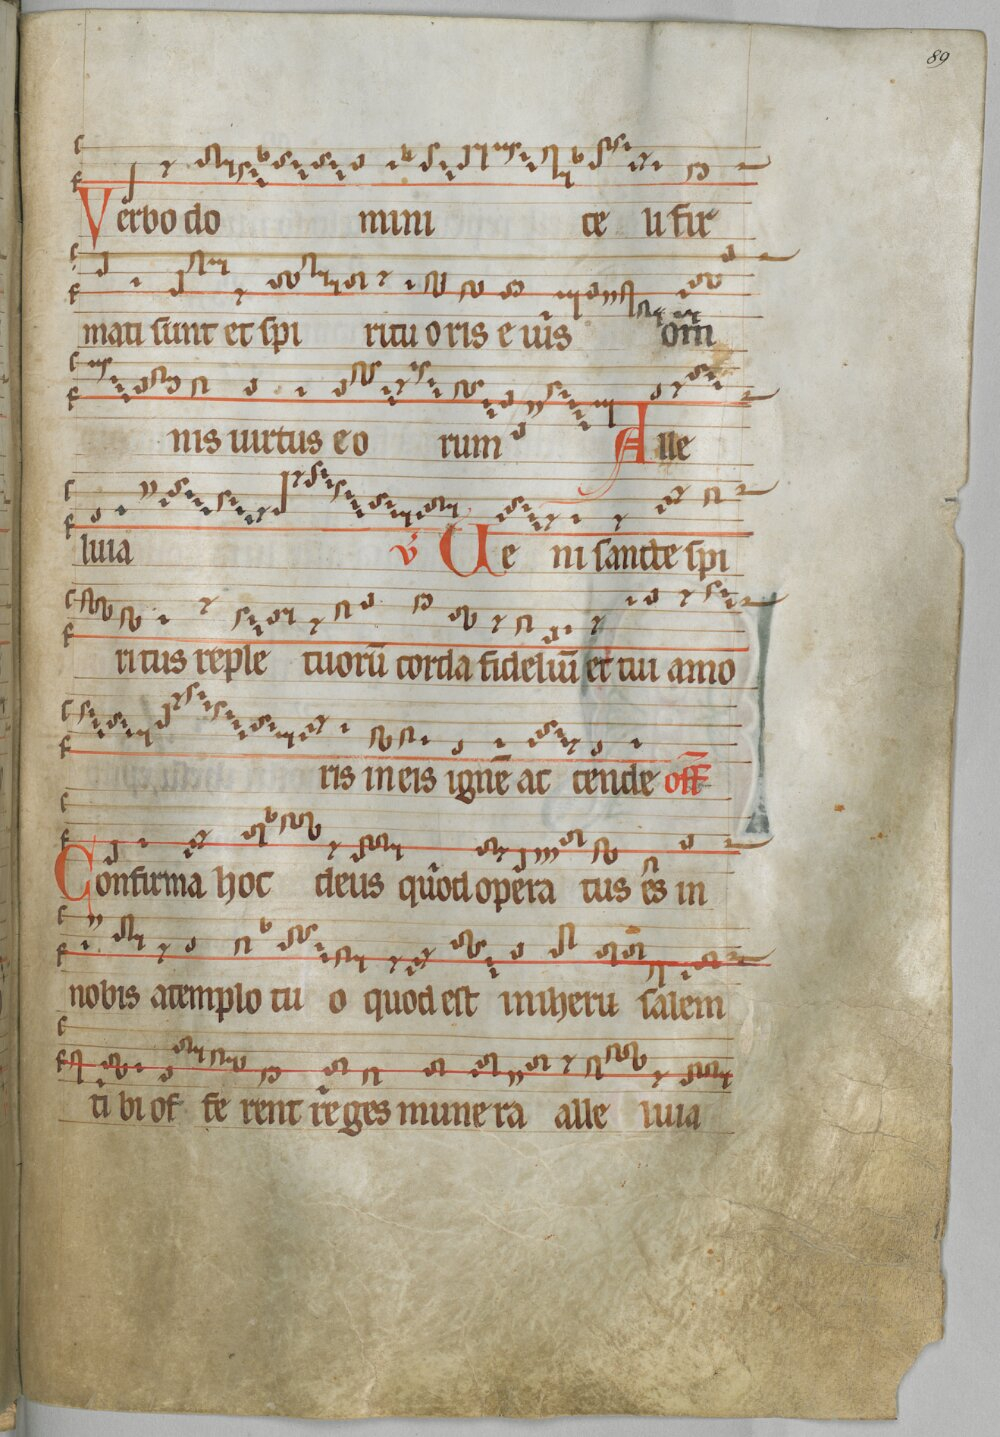 89
Verbo do mini ce li fir
mati sunt et spi ritu oris e uis om̄
nis uirtus eo rum Alle
luia v̄ Ue ni sancte spi
ritus reple tuorū corda fideliū et tui amo
ris in eis ignē ac cende off̄
Confirma hoc deus quod opera tus es in
nobis a templo tu o quod est in iheru salem
ti bi of fe rent reges mune ra alle luia